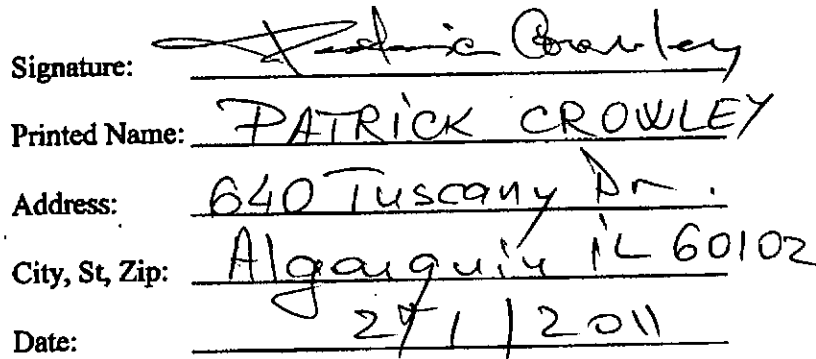 Signature: Crowley
Printed Name: PATRICK CROWLEY
Address: 640 Tuscany Dr.
City, St, Zip: Algonquin IL 60102
Date: 1 | 2011